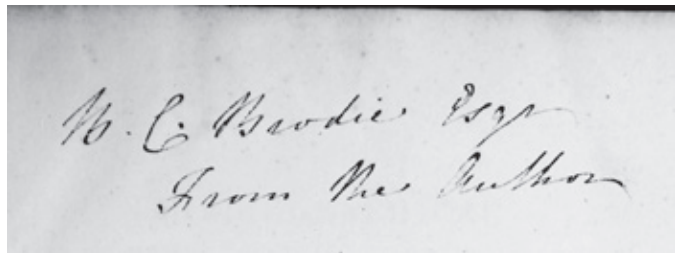 B. C. Brodie Esqr
From the Author